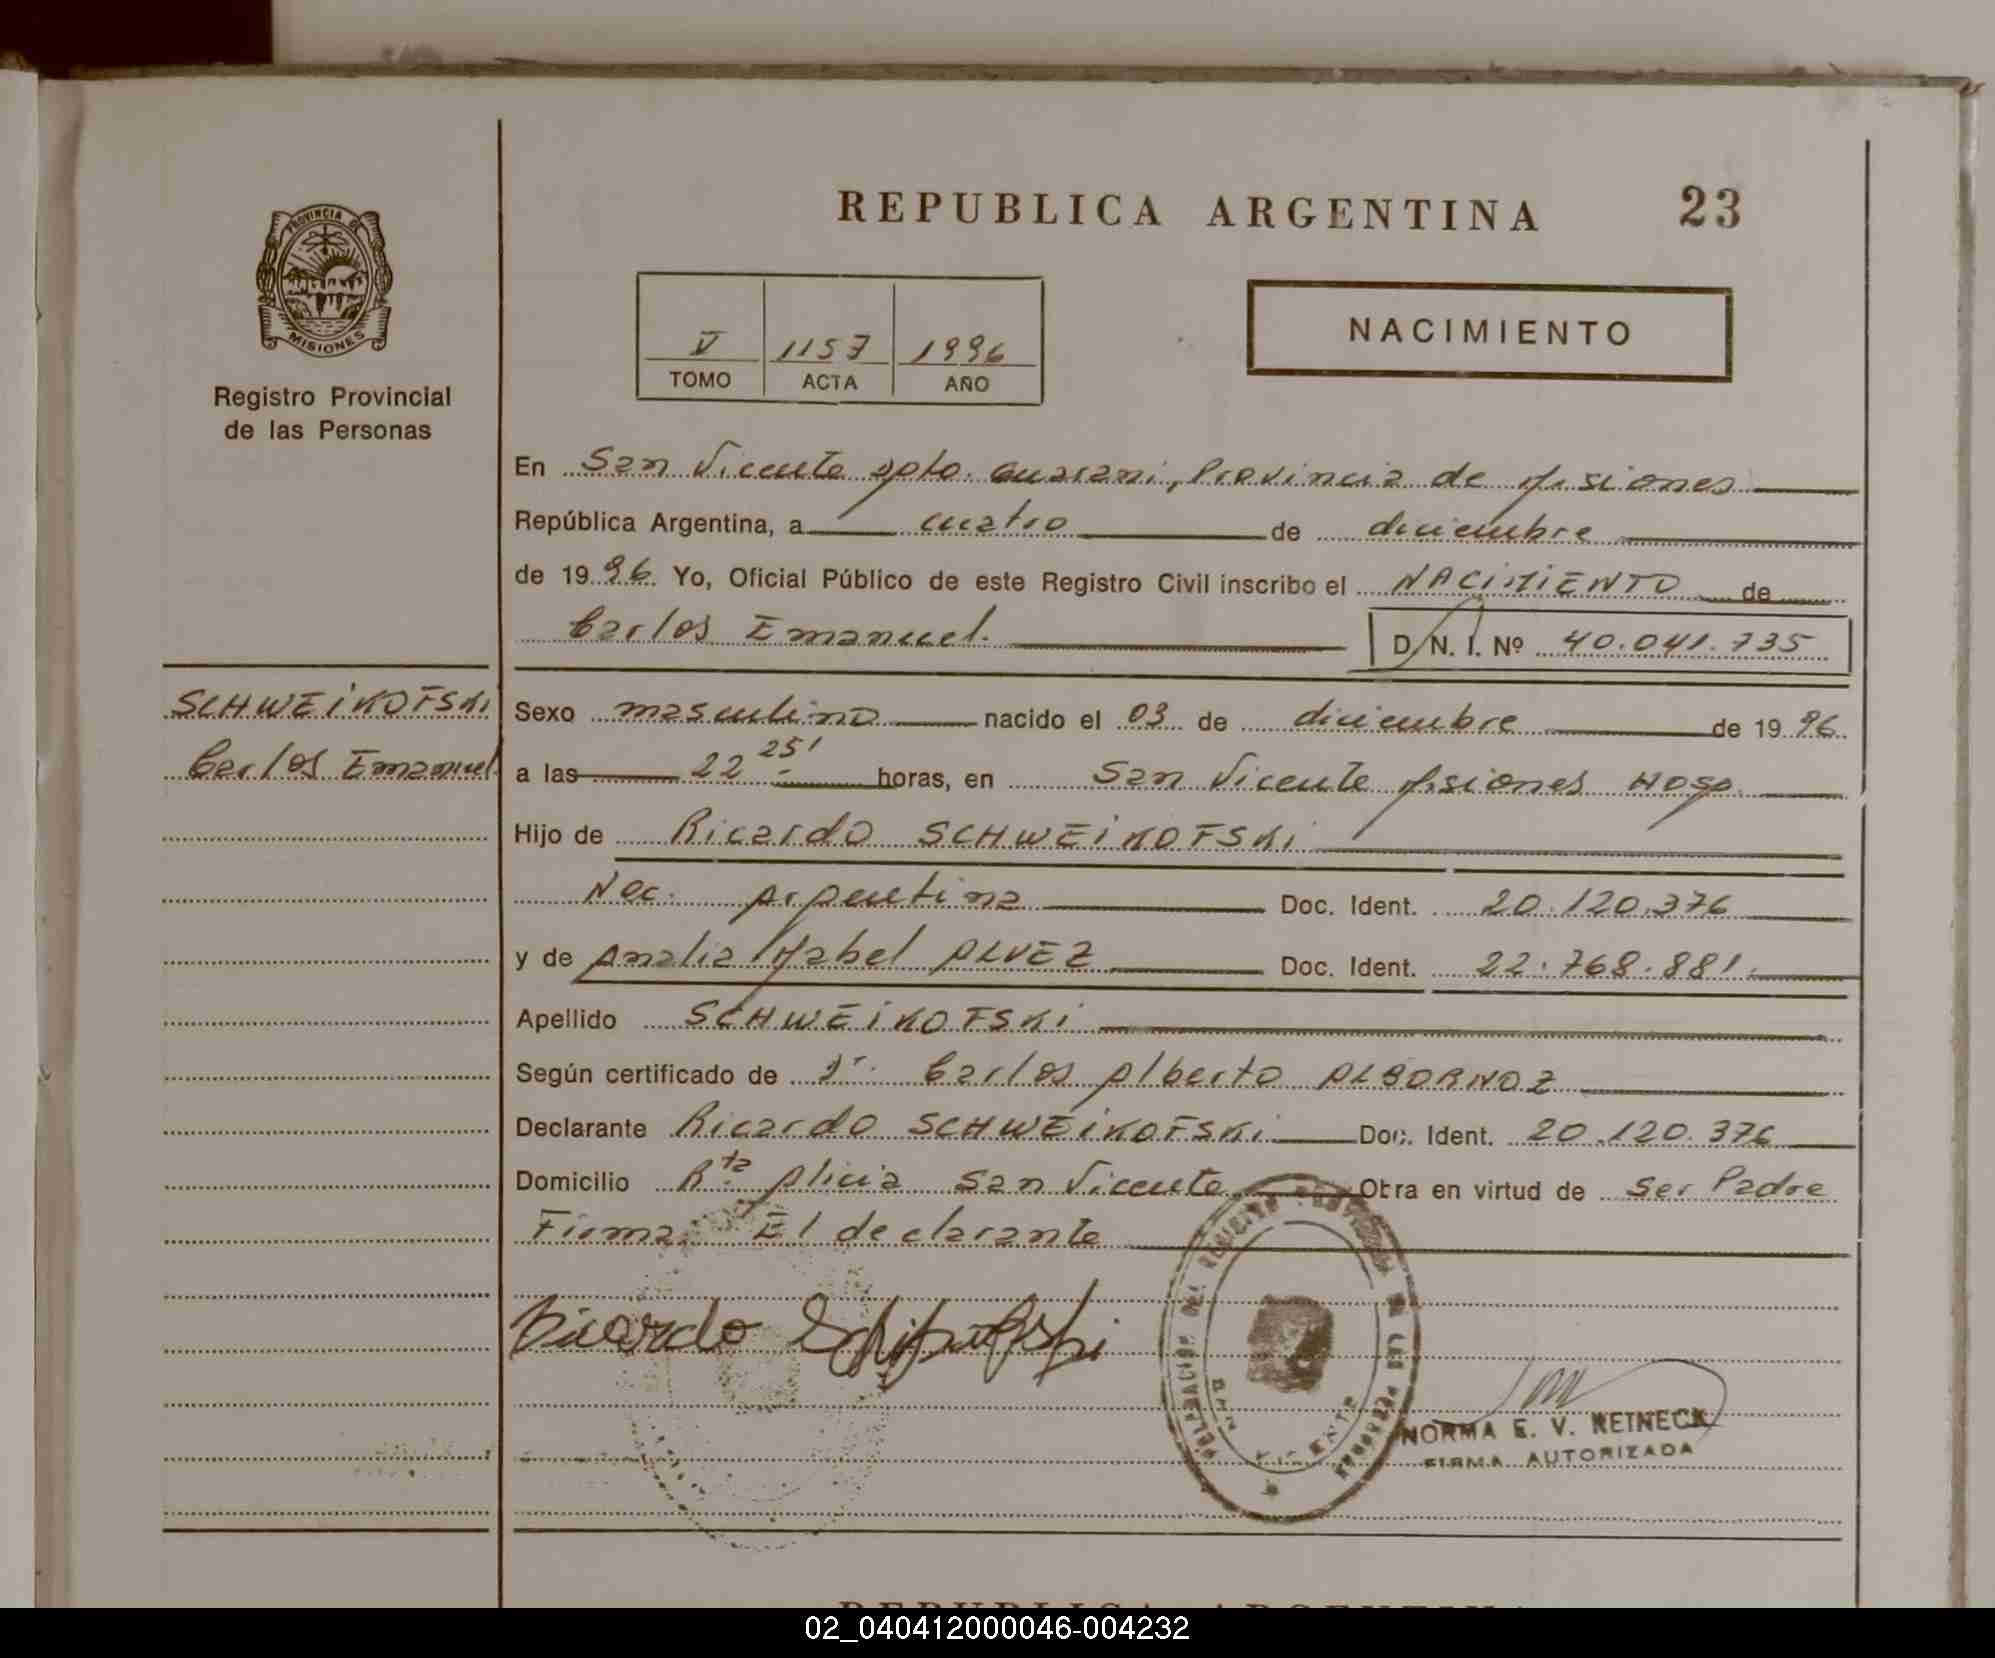 REPUBLICA ARGENTINA 23
PROVINCIA DE
MISIONES
Registro Provincial
de las Personas
V 1157 1996
TOMO ACTA AÑO
NACIMIENTO
En San Vicente Dpto. Guarani, Provincia de Misiones
República Argentina, a cuatro de diciembre
de 1996 Yo, Oficial Público de este Registro Civil inscribo el NACIMIENTO de
Carlos Emanuel. D. N. I. Nº 40.041.735
SCHWEIKOFSKI
Carlos Emanuel
Sexo masculino nacido el 03 de diciembre de 1996.
a las 22 25' horas, en San Vicente Misiones Hosp.
Hijo de Ricardo SCHWEIKOFSKI
Nac. Argentina Doc. Ident. 20.120.376
y de Analia Mabel ALVEZ Doc. Ident. 22.768.881.
Apellido SCHWEIKOFSKI
Según certificado de Dr. Carlos Alberto ALBORNOZ
Declarante Ricardo SCHWEIKOFSKI Doc. Ident. 20.120.376
Domicilio Rta. Alicia San Vicente Obra en virtud de Ser Padre
Firma. El declarante
Ricardo
DELEGACION DEL REGISTRO PROVINCIAL DE LAS PERSONAS
SAN VICENTE
NORMA E. V. REINECK
FIRMA AUTORIZADA
REPUBLICA ARGENTINA
02_040412000046-004232